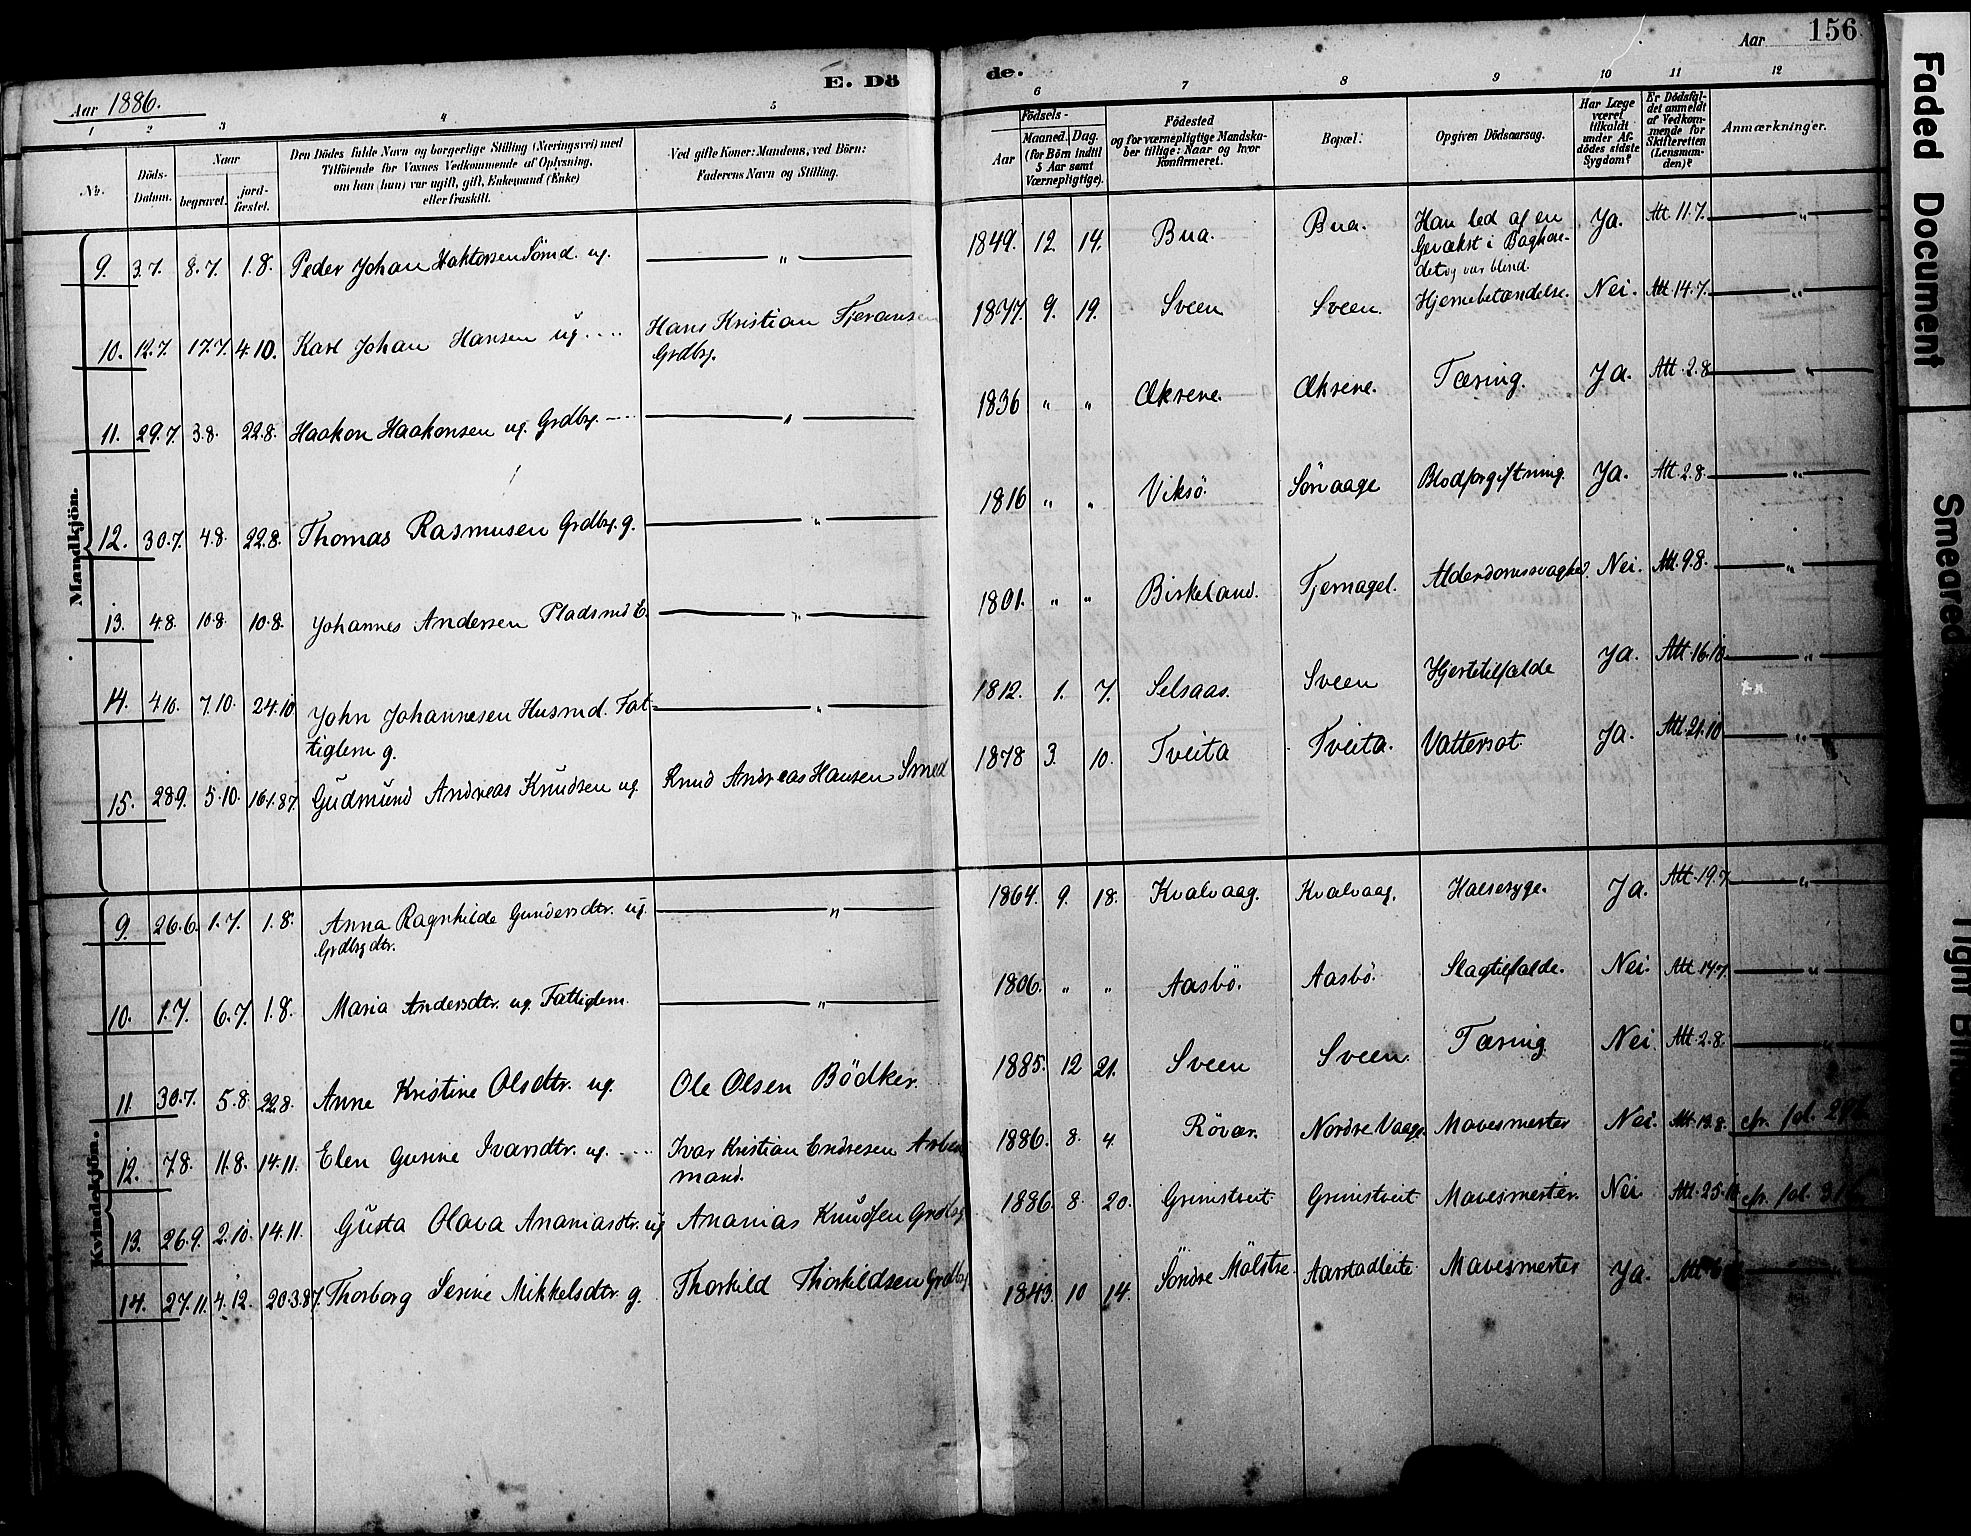 156
Aar 1886.
E. Dö de.
Aar
1 2 3 4 5 6 7 8 9 10 11 12
No.
Döds-Datum.
Naar
begravet.
jord-fæstet.
Den Dödes fulde Navn og borgerlige Stilling (Næringsvei) med
Tilföiende for Voxnes Vedkommende af Oplysning,
om han (hun) var ugift, gift, Enkemand (Enke)
eller fraskilt.
Ved gifte Koner: Mandens, ved Börn:
Faderens Navn og Stilling.
Födsels-
Aar
Maaned. Dag.
(for Börn indtil
5 Aar samt
Værnepligtige).
Födested
og for værnepligtige Mandska-
ber tillige: Naar og hvor
konfirmeret.
Bopæl:
Opgiven Dödsaarsag.
Har Læge
været
tilkaldt
under Af-
dödes sidste
Sygdom?
Er Dödsfal-
det anmeldt
af Vedkom-
mende for
Skifteretten
(Lensman-
den)?
Anmærkninger.
Mandkjön.
9. 3.7. 8.7. 1.8. Peder Johan Haktorsen Sömd. ug. — " — 1849. 12. 14. Bua. Bua. Han led af en Ja. Att. 11.7. — " —
Gevækst i Baghove-
det og var blind.
10. 12.7. 17.7. 4.10. Karl Johan Hansen ug. Hans Kristian Tjeransen 1877. 9. 19. Sveen Sveen. Hjernebetændelse. Nei. Att 14.7. — " —
Grdbr.
11. 29.7. 3.8. 22.8. Haakon Haakonsen ug. Grdbr. — " — 1836 " " Økrene. Økrene. Tæring. Ja. Att. 2.8. — " —
12. 30.7. 4.8. 22.8. Thomas Rasmusen Grdbr. g. — " — 1816 " " Viksö. Sörvaage Blodforgiftning. Ja. Att. 2.8. — " —
13. 4.8. 10.8. 10.8. Johannes Andersen Pladsmd E. — " — 1801. " " Birkeland. Tjernagel. Alderdomssvaghed. Nei. Att. 9.8. — " —
14. 4.10. 7.10. 24.10 John Johannesen Husmd. Fat- — " — 1812. 1. 7. Selsaas. Sveen Hjertetilfælde Ja. Att. 16.10. — " —
tiglem g.
15. 28.9. 5.10. 16.1.87 Gudmund Andreas Knudsen ug Knud Andreas Hansen Smed 1878 3. 10. Tveita Tveita. Vattersot. Ja. Att. 21.10 — " —
Kvindekjön.
9. 26.6. 1.7. 1.8. Anna Ragnhilde Gundersdtr. ug. — " — 1864. 9. 18. Kvalvaag. Kvalvaag. Halsesyge. Ja. Att. 19.7 — " —
Grdbrgdtr.
10. 1.7. 6.7. 1.8. Maria Andersdtr. ug. Fattiglem. — " — 1806. " " Aasbö. Aasbö. Slagtilfælde. Nei. Att. 14.7. — " —
11. 30.7. 5.8. 22.8. Anne Kristine Olsdtr. ug. Ole Olsen Bödker. 1885. 12 21. Sveen Sveen. Tæring Nei. Att. 2.8. — " —
12. 7.8. 11.8. 14.11. Elen Gurine Ivarsdtr. ug. Ivar Kristian Endresen 1886. 8. 4. Rövær. Nordre Vaage. Mavesmerter Nei. Att. 13.8. cfr. fol.
mand.
13. 26.9. 2.10. 14.11. Gusta Olava Ananiasdtr. ug Ananias Knudsen Grdbr 1886. 8. 20. Grimstveit Grimstveit Mavesmerter. Nei Att. 25. cfr. fol.
14. 27.11. 4.12. 20.3.87. Thorborg Serine Mikkelsdtr. g. Thorkild Thorkildsen Grdbr. 1843. 10 14. Söndre Mölstre. Aarstadleite Mavesmerter Ja. Att.
Faded Document
Smeared
Tight